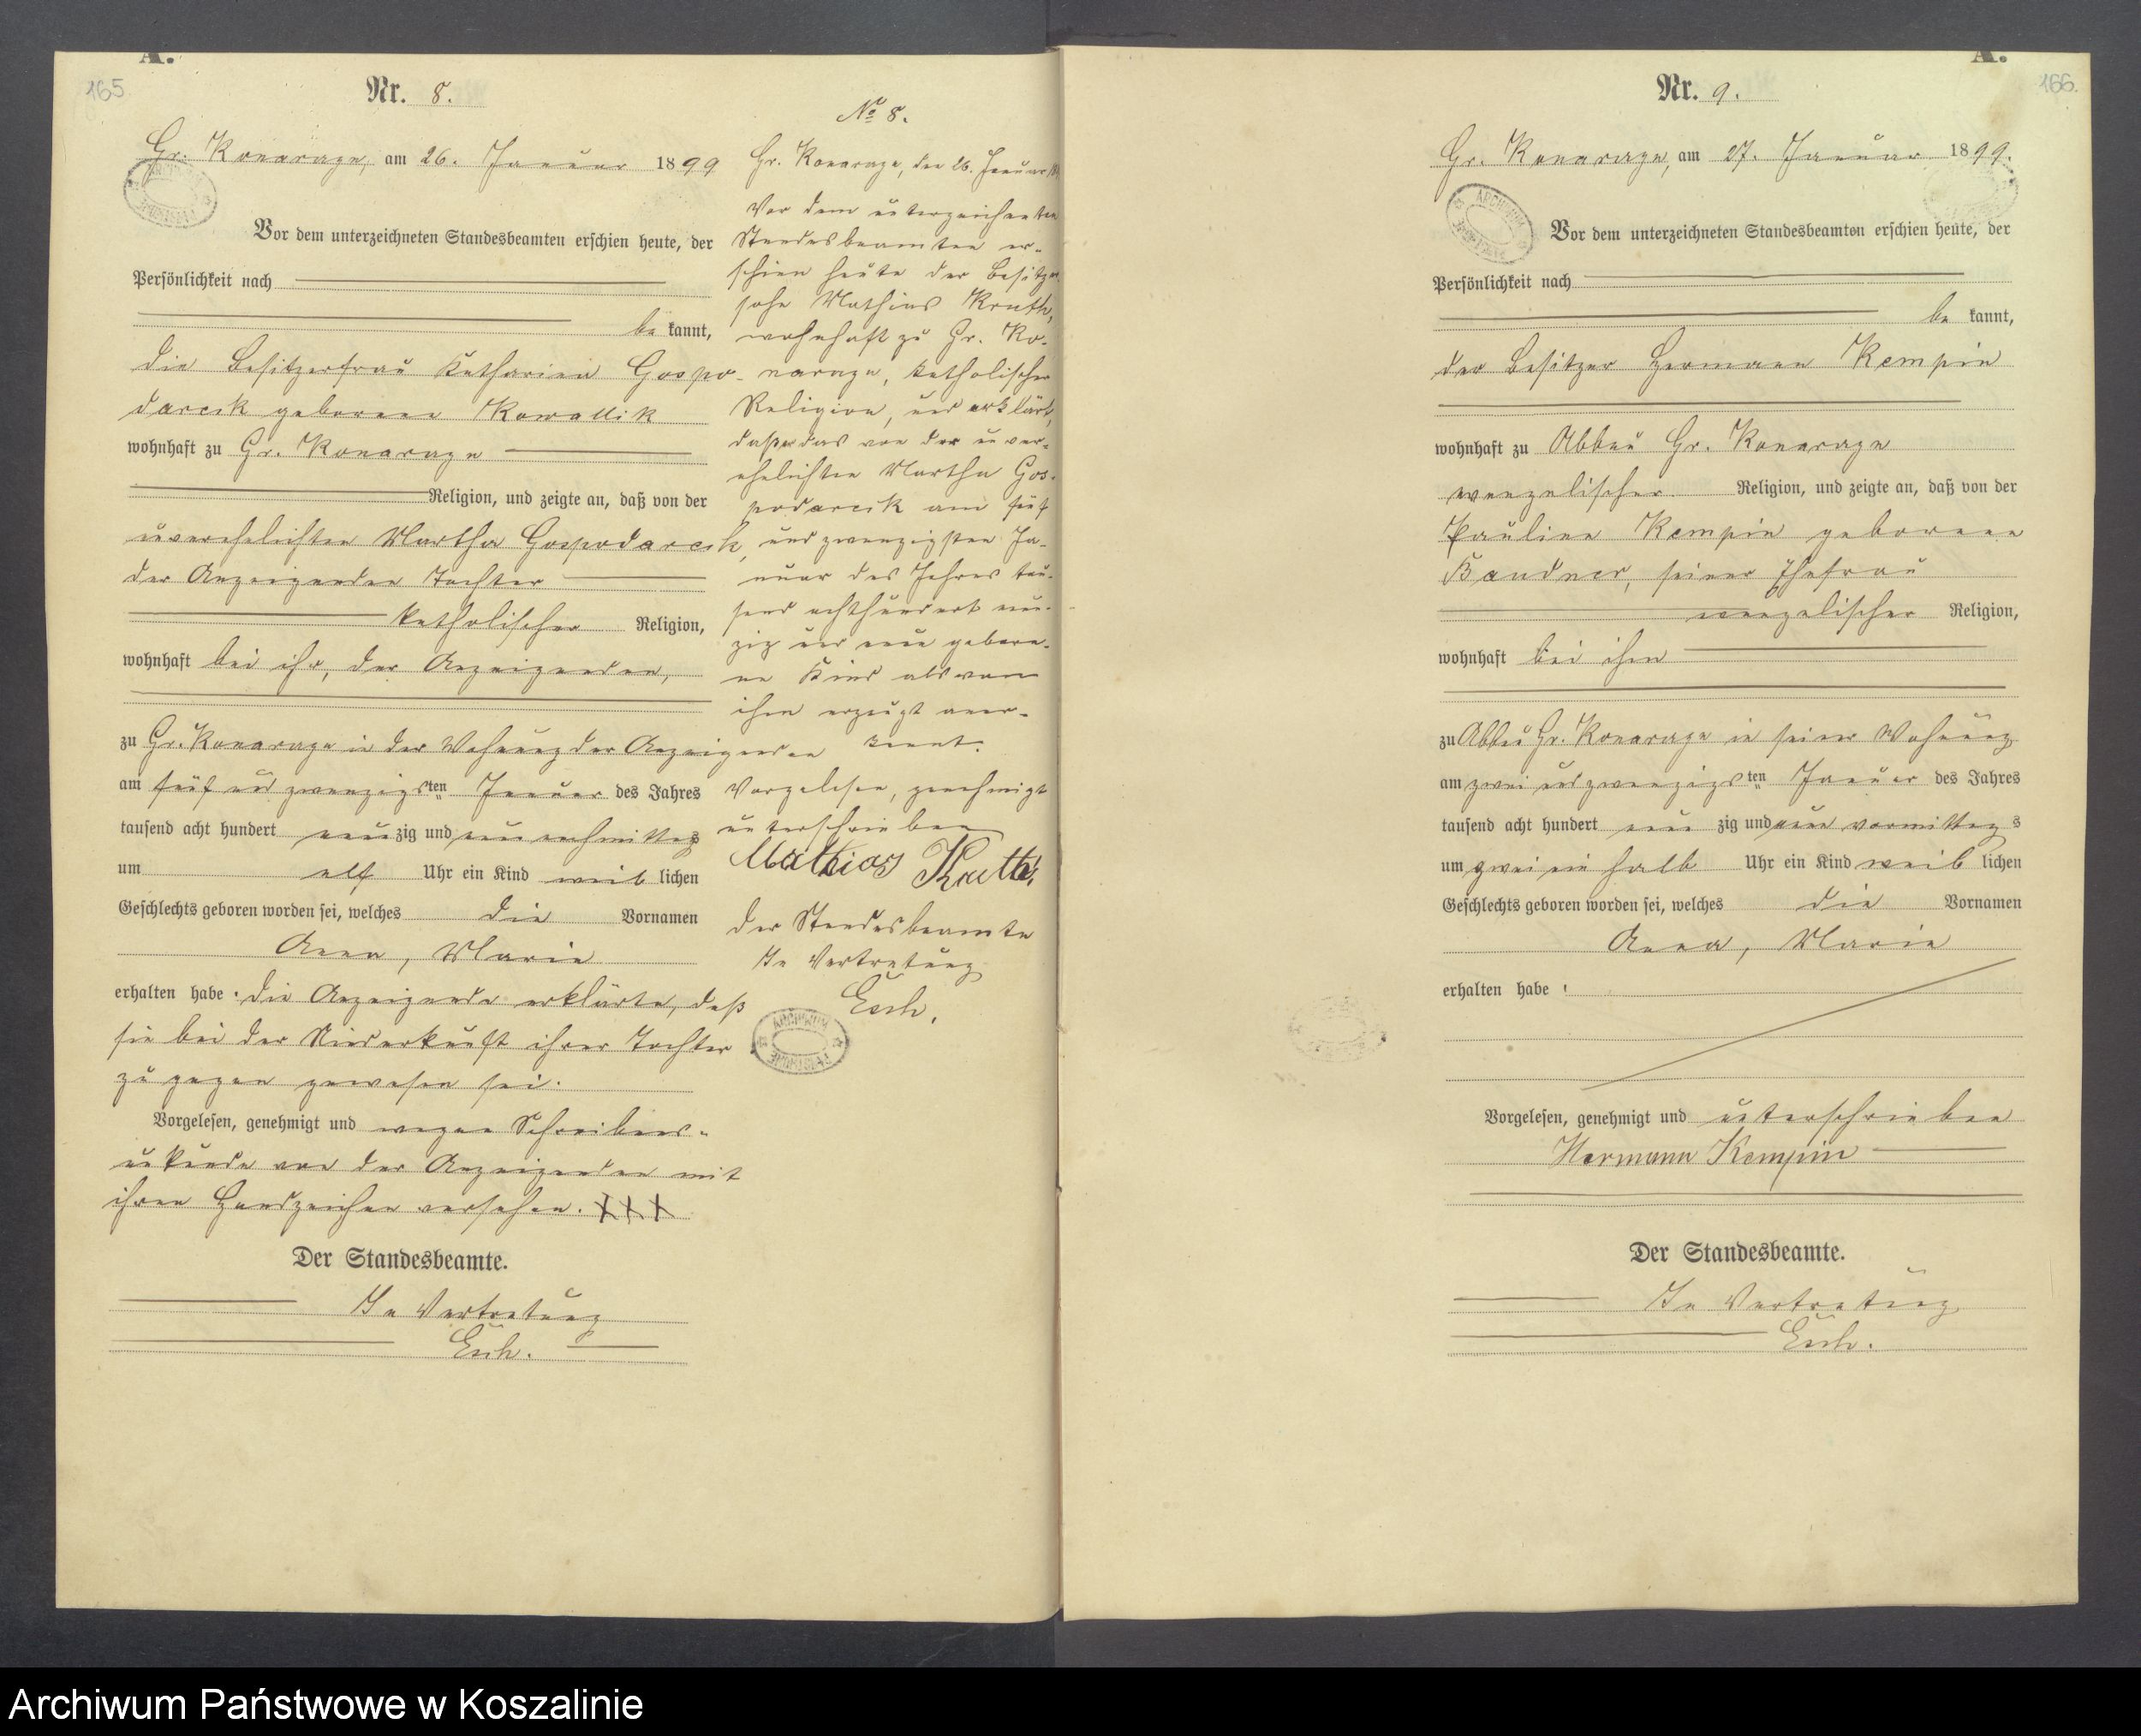 A.
165
Nr. 8.
Gr. Konarzyn, am 26. Januar 1899
Vor dem unterzeichneten Standesbeamten erschien heute, der
Persönlichkeit nach
be kannt,
die Besitzerfrau Katharina Gospo-
darcik geborene Kowallik
wohnhaft zu Gr. Konarzyn
Religion, und zeigte an, daß von der
unverehelichten Martha Gospodarcik,
der Anzeigenden Tochter
katholischer Religion,
wohnhaft bei ihr, der Anzeigenden,
zu Gr. Konarzyn in der Wohnung der Anzeigenden
am fünf und zwanzigsten Januar des Jahres
tausend acht hundert neunzig und neun nachmittags
um elf Uhr ein Kind weiblichen
Geschlechts geboren worden sei, welches die Vornamen
Anna, Marie
erhalten habe. Die Anzeigende erklärte, daß
sie bei der Niederkunft ihrer Tochter
zugegen gewesen sei.
Vorgelesen, genehmigt und wegen Schreibens-
unkunde von der Anzeigenden mit
ihren Handzeichen versehen. XXX
Der Standesbeamte.
In Vertretung
Esch.
No 8.
Gr. Konarzyn, den 26. Januar
Vor dem unterzeichneten
Standesbeamten er-
schien heute der Besitzer-
sohn Mathias Kruth,
wohnhaft zu Gr. Ko-
narzyn, katholischer
Religion, und erklärt,
daß er das von der unver-
ehelichten Martha Gos-
podarcik am fünf
und zwanzigsten Ja-
nuar des Jahres tau-
send achthundert neun-
zig und neun gebore-
ne Kind als von
ihm erzeugt aner-
kennt.
Vorgelesen, genehmigt
unterschrieben
Mathias Kruth
Der Standesbeamte
In Vertretung
Esch.
ARCHIWUM
A.
166.
Nr. 9.
Gr. Konarzyn, am 27. Januar 1899.
ARCHIWUM
Vor dem unterzeichneten Standesbeamten erschien heute, der
Persönlichkeit nach
be kannt,
der Besitzer Hermann Kempin
wohnhaft zu Abbau Gr. Konarzyn
evangelischer Religion, und zeigte an, daß von der
Pauline Kempin geborene
Bandner, seiner Ehefrau
evangelischer Religion,
wohnhaft bei ihm
zu Abbau Gr. Konarzyn in seiner Wohnung
am zwei und zwanzigsten Januar des Jahres
tausend acht hundert neun zig und neun vormittags
um zwei ein halb Uhr ein Kind weiblichen
Geschlechts geboren worden sei, welches die Vornamen
Anna, Marie
erhalten habe
Vorgelesen, genehmigt und unterschrieben
Hermann Kempin
Der Standesbeamte.
In Vertretung
Esch.
Archiwum Państwowe w Koszalinie